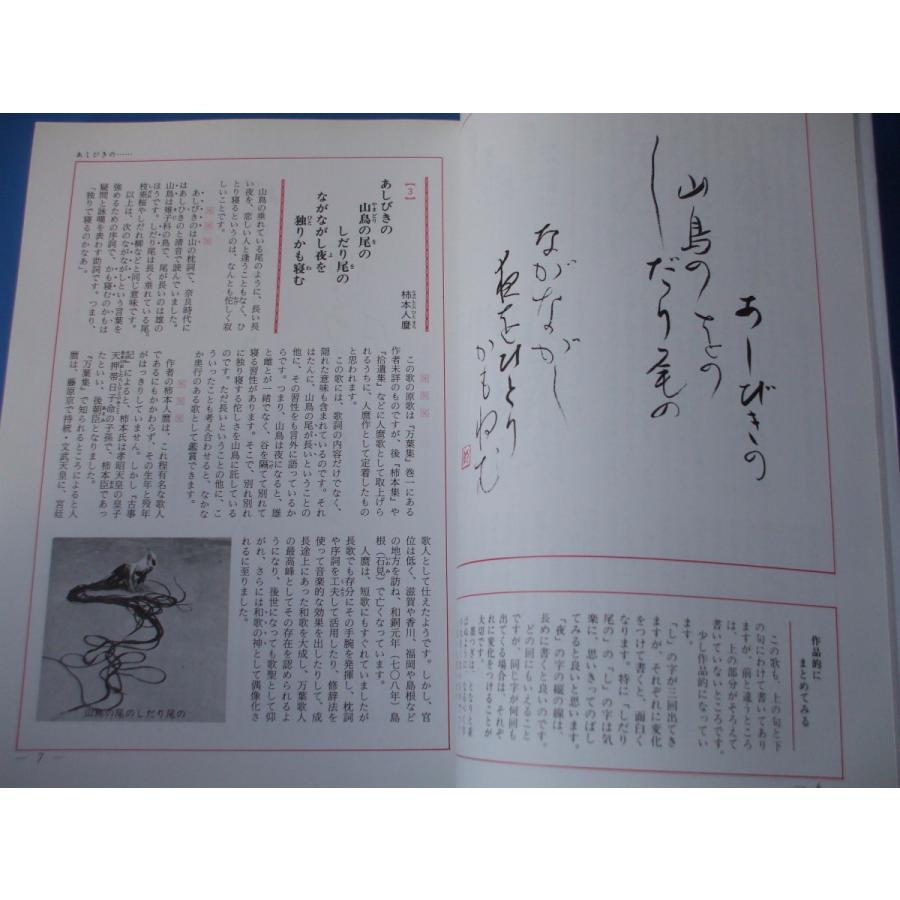 あしびきの
山鳥のをの
し
だり尾の
ながながし
夜をひとり
かもねむ
作品的に
まとめてみる
この歌も、上の句と下
の句にわけて書いてあり
ますが、前と違うところ
は、上の部分がそろえて
書いていないところです。
少し作品的になってい
「し」の字が三回出てき
ますが、それぞれに変化
をつけて書くと、面白く
なります。特に「しだり
尾の」の「し」の字は気
楽に、思いきってのばし
てみると良いと思います。
「夜」の字の縦の線は、
長めに書くと良いのです。
どの回にもいえること
ですが、同じ字が何回も
出てくる場合は、それぞ
れに変化をつけることが
大切です。
あしびきの……
【3】
あしびきの
山鳥の尾の
しだり尾の
ながながし夜を
独りかも寝む
柿本人麿
山鳥の垂れている尾のように、長い長
い夜を、恋しい人と逢うこともなく、ひ
とり寝るというのは、なんとも侘しく寂
しいことです。
あしびきのは山の枕詞で、奈良時代に
はあしひきのと清音で読んでいました。
山鳥は雉子科の鳥で、尾が長いのは雄の
ほうです。しだり尾は長く垂れている尾。
枝垂桜やしだれ柳などと同じ意味です。
以上は、次のながながしという言葉を
強めるための序詞で、かも寝むのかもは
疑問と詠嘆を表わす助詞です。つまり、
「独りで寝るのかなあ」。
この歌の原歌は「万葉集」巻一にある
作者未詳のものですが、後「柿本集」や
「拾遺集」などに人麿歌として取上げら
れるうちに、人麿作として定着したもの
と思われます。
この歌には、歌詞の内容だけでなく、
隠れた意味も含まれているのです。それ
はたんに、山鳥の尾が長いということの
他に、その習性をも言外に語っているか
らです。つまり、山鳥は夜になると、雄
と雌とが一緒でなく、谷を隔てて別れて
寝る習性があります。そこで、別れ別れ
に独り寝する侘しさを山鳥に託している
のです。ただ長いということの他に、こ
ういったことも考え合わせると、なかな
か奥行のある歌として鑑賞できます。
作者の柿本人麿は、これ程有名な歌人
であるにもかかわらず、その生年と歿年
がはっきりしていません。しかし「古事
記」によると、柿本氏は孝昭天皇の皇子
天押帯日子命の子孫で、柿本臣であっ
たといい、後朝臣となりました。
「万葉集」で知られるところによると人
麿は、藤原京で持統・文武天皇に、宮廷
歌人として仕えたようです。しかし、官
位は低く、滋賀や香川、福岡や島根など
の地方を訪ね、和銅元年（七〇八年）島
根（石見）で亡くなっています。
人麿は、短歌にもすぐれていましたが
長歌でも存分にその手腕を発揮し、枕詞
や序詞を工夫して活用したり、修辞法を
使って音楽的な効果を出したりして、成
長途上にあった和歌を大成し、万葉歌人
の最高峰としてその存在を認められるよ
うになり、後世になっても歌聖として仰
がれ、さらには和歌の神として偶像化さ
れるに至りました。
山鳥の尾のしだり尾の
— 7 —